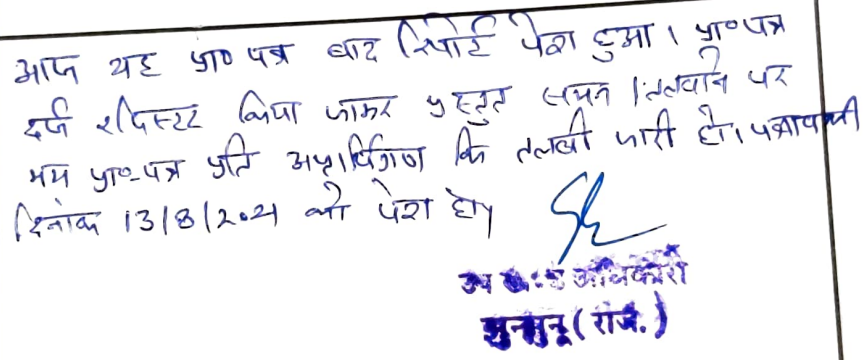 आज यह प्रा० पत्र बाद रिपोर्ट पेश हुआ। प्रा०पत्र
दर्ज रजिस्टर किया जाकर प्रस्तुत सम्मन/तलवाने पर
मय प्रा०-पत्र प्रति अप्रार्थिगण कि तलबी जारी हो। पत्रावली
दिनांक 13/8/2021 को पेश हो।
उप खण्ड अधिकारी
झुन्झुनू (राज.)